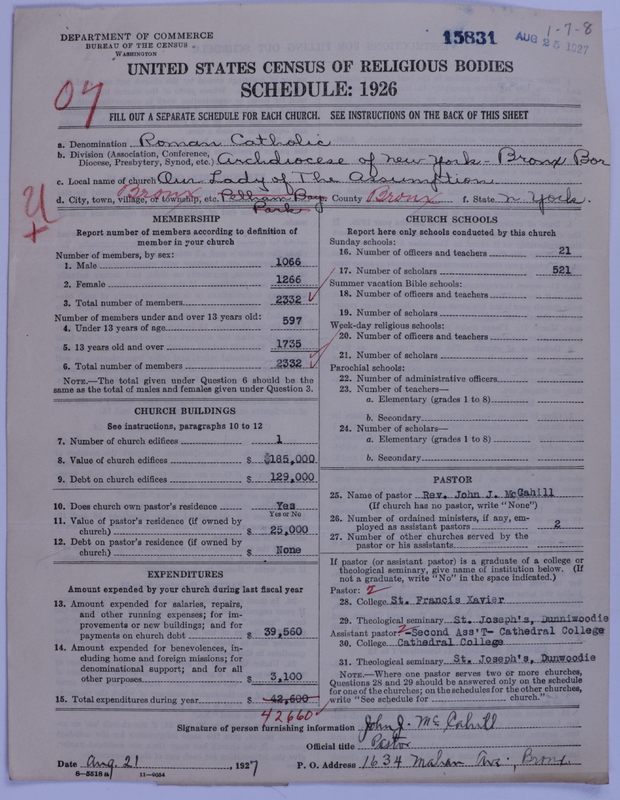 DEPARTMENT OF COMMERCE
BUREAU OF THE CENSUS
WASHINGTON
15831
AUG 25 1927
1-7-8
UNITED STATES CENSUS OF RELIGIOUS BODIES
SCHEDULE: 1926
04
FILL OUT A SEPARATE SCHEDULE FOR EACH CHURCH. SEE INSTRUCTIONS ON THE BACK OF THIS SHEET
a. Denomination Roman Catholic
b. Division (Association, Conference, Diocese, Presbytery, Synod, etc.) Archdiocese of New York - Bronx Bor
c. Local name of church Our Lady of The Assumption
d. City, town, village, or township, etc. Bronx Pelham Bay Park County Bronx f. State N. York.
U
+
MEMBERSHIP
Report number of members according to definition of
member in your church
Number of members, by sex:
1. Male 1066
2. Female 1266
3. Total number of members 2332
Number of members under and over 13 years old:
4. Under 13 years of age 597
5. 13 years old and over 1735
6. Total number of members 2332
NOTE.—The total given under Question 6 should be
same as the total of males and females given under Question 3.
CHURCH BUILDINGS
See instructions, paragraphs 10 to 12
7. Number of church edifices 1
8. Value of church edifices $185,000
9. Debt on church edifices $ 129,000
10. Does church own pastor's residence Yes
Yes or No
11. Value of pastor's residence (if owned by
church) $ 25,000
12. Debt on pastor's residence (if owned by
church) $ None
EXPENDITURES
Amount expended by your church during last fiscal year
13. Amount expended for salaries, repairs,
and other running expenses; for im-
provements or new buildings; and for
payments on church debt $ 39,560
14. Amount expended for benevolences, in-
cluding home and foreign missions; for
denominational support; and for all
other purposes $ 3,100
15. Total expenditures during year $ 42,600
42660
CHURCH SCHOOLS
Report here only schools conducted by this church
Sunday schools:
16. Number of officers and teachers 21
17. Number of scholars 521
Summer vacation Bible schools:
18. Number of officers and teachers
19. Number of scholars
Week-day religious schools:
20. Number of officers and teachers
21. Number of scholars
Parochial schools:
22. Number of administrative officers
23. Number of teachers—
a. Elementary (grades 1 to 8)
b. Secondary
24. Number of scholars—
a. Elementary (grades 1 to 8)
b. Secondary
PASTOR
25. Name of pastor Rev. John J. McCahill
(If church has no pastor, write "None")
26. Number of ordained ministers, if any, em-
ployed as assistant pastors 2
27. Number of other churches served by the
pastor or his assistants
If pastor (or assistant pastor) is a graduate of a college or
theological seminary, give name of institution below. (If
not a graduate, write "No" in the space indicated.)
Pastor: 2
28. College St. Francis Xavier
29. Theological seminary St. Joseph's, Dunniwoodie
Assistant pastor 2 Second Ass'T- Cathedral College
30. College Cathedral College
31. Theological seminary St. Joseph's, Dunwoodie
NOTE.—Where one pastor serves two or more churches,
Questions 28 and 29 should be answered only on the schedule
for one of the churches; on the schedules for the other churches,
write "See schedule for church."
Signature of person furnishing information John J. McCahill
Official title Pastor
Date Aug. 21, 1927 P. O. Address 1634 Mahan Ave., Bronx
8-5518a 11-9054